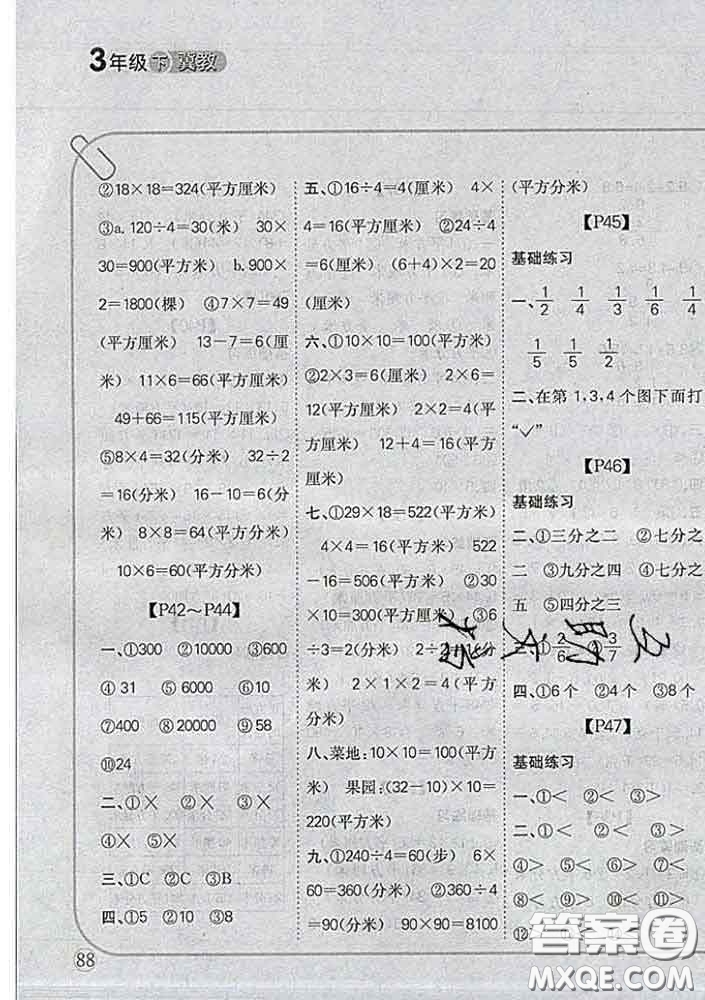 3年级 下 冀教
②18×18=324(平方厘米)
③a. 120÷4=30(米) 30×
30=900(平方米) b. 900×
2=1800(棵) ④7×7=49
(平方厘米) 13-7=6(厘
米) 11×6=66(平方厘米)
49+66=115(平方厘米)
⑤8×4=32(分米) 32÷2
=16(分米) 16-10=6(分
米) 8×8=64(平方分米)
10×6=60(平方分米)
【P42～P44】
一、①300 ②10000 ③600
④31 ⑤6000 ⑥10
⑦400 ⑧20000 ⑨58
⑩24
二、①× ②× ③×
④× ⑤×
三、①C ②C ③B
四、①5 ②10 ③8
88
五、①16÷4=4(厘米) 4×
4=16(平方厘米) ②24÷4
=6(厘米) (6+4)×2=20
(厘米)
六、①10×10=100(平方米)
②2×3=6(厘米) 2×6=
12(平方厘米) 2×2=4(平
方厘米) 12+4=16(平方
厘米)
七、①29×18=522(平方米)
4×4=16(平方米) 522
-16=506(平方米) ②30
×10=300(平方厘米) ③6
÷3=2(分米) 2÷2=1(分
米) 2×1×2=4(平方
分米)
八、菜地:10×10=100(平方
米) 果园:(32-10)×10=
220(平方米)
九、①240÷4=60(步) 6×
60=360(分米) ②360÷4
=90(分米) 90×90=8100
(平方分米)
【P45】
基础练习
一、1/2 1/4 1/3 1/6 1/4
1/5 1/5 1/2
二、在第 1,3,4 个图下面打
“✓”
【P46】
基础练习
二、①三分之二 ②七分之
二 ③九分之四 ④六分之
五 ⑤四分之三
三、①2/6 ②3/7
四、①6个 ②4个 ③8个
【P47】
基础练习
一、①< ②< ③>
二、①< ②< ③>
④> ⑤< ⑥> ⑦>
⑧> ⑨> ⑩> ⑪<
⑫
答案圈
MXQE.COM